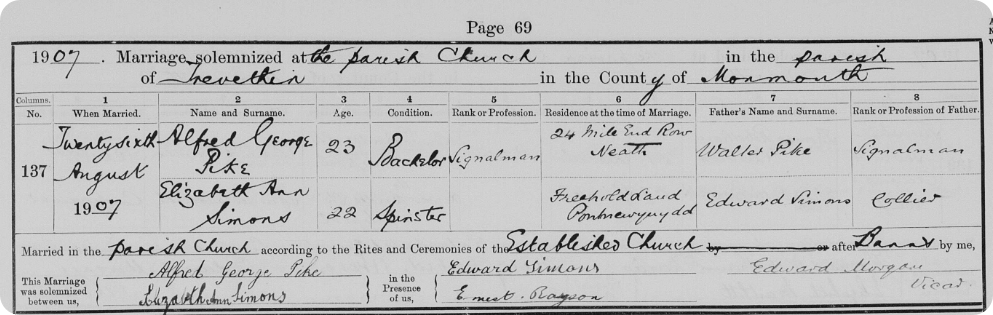 Page 69
1907. Marriage solemnized at the parish Church in the parish
of Trevethin in the County of Monmouth
Columns. 1 2 3 4 5 6 7 8
No. When Married. Name and Surname. Age. Condition. Rank or Profession. Residence at the time of Marriage. Father's Name and Surname. Rank or Profession of Father.
137 Twentysixth August 1907
Alfred George Pike 23 Bachelor Signalman 24 Mile End Row Neath Walter Pike Signalman
Elizabeth Ann Simons 22 Spinster Freehold Land Pontnewynydd Edward Simons Collier
Married in the parish Church according to the Rites and Ceremonies of the Established Church by or after Banns by me,
This Marriage was solemnized between us, Alfred George Pike in the Presence of us, Edward Simons Edward Morgan
Elizabeth Ann Simons Ernest Vicar.